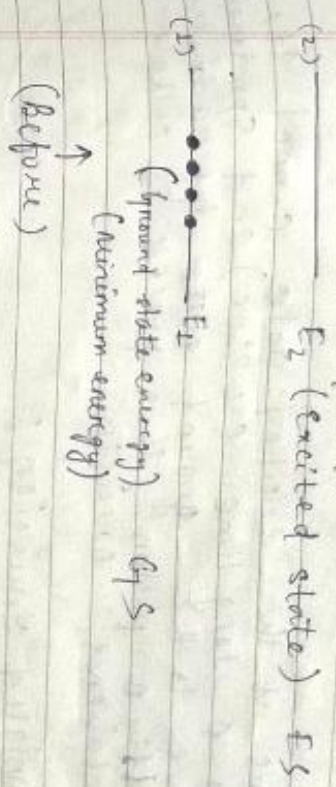 (2) E2 (excited state) ES
(1) E1
(Ground state energy) GS
(Minimum energy)
↑
(Before)